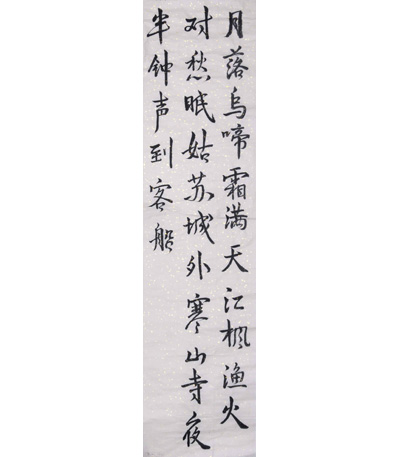 月落乌啼霜满天江枫渔火
对愁眠姑苏城外寒山寺夜
半钟声到客船